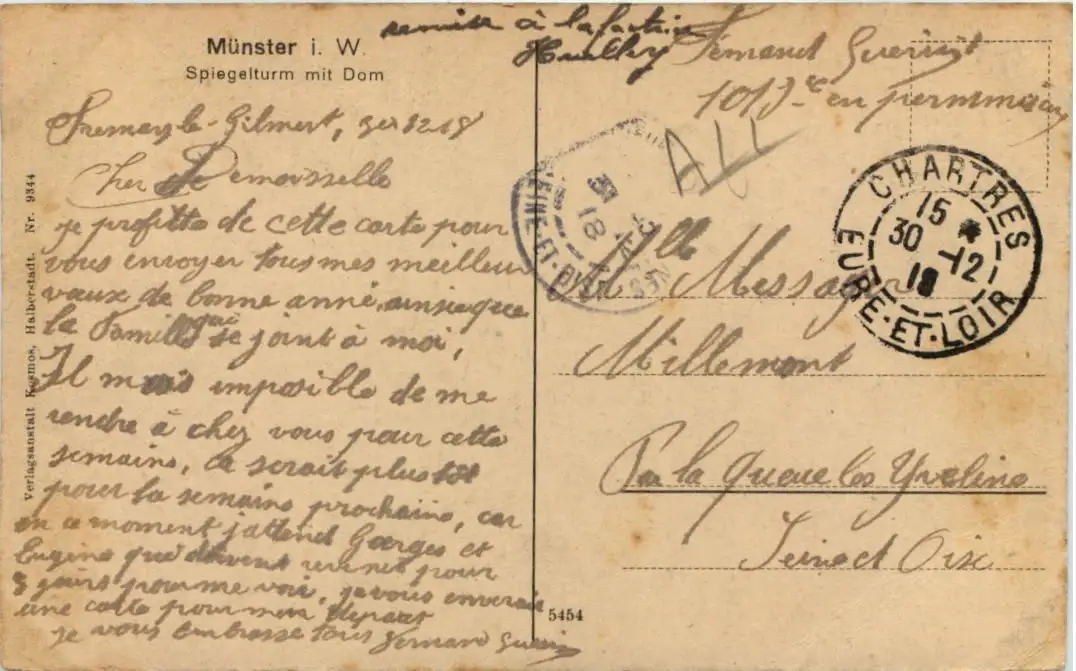 Münster i. W.
Spiegelturm mit Dom
remise à la factrice
Fernand Guérin
en permission
Fresnay le-Gilmert,
Cher Demoisselle
je profitte de cette carte pour
vous envoyer tous mes meilleur
vœux de bonne anné, ainsieque
la Famille qui se joint à moi,
Il m'ais imposible de me
rendre à chez vous pour cette
semains, ce serait plus tôt
pour la semains prochains, car
en ce moment j'attend Gorges et
Eugène que doivent venir pour
3 jours pour me voir, je vous enverais
une carte pour mon depart
je vous Embrasse tous Fernand Guérin
Verlagsanstalt Kosmos, Halberstadt. Nr. 9344
5454
ALL
SEINE-ET-OISE
18
CHARTRES
15 *
30 -12
18
EURE-ET-LOIR
Mlle Messager
Millemont
Par la Queue les Yvelines
Seine et Oise